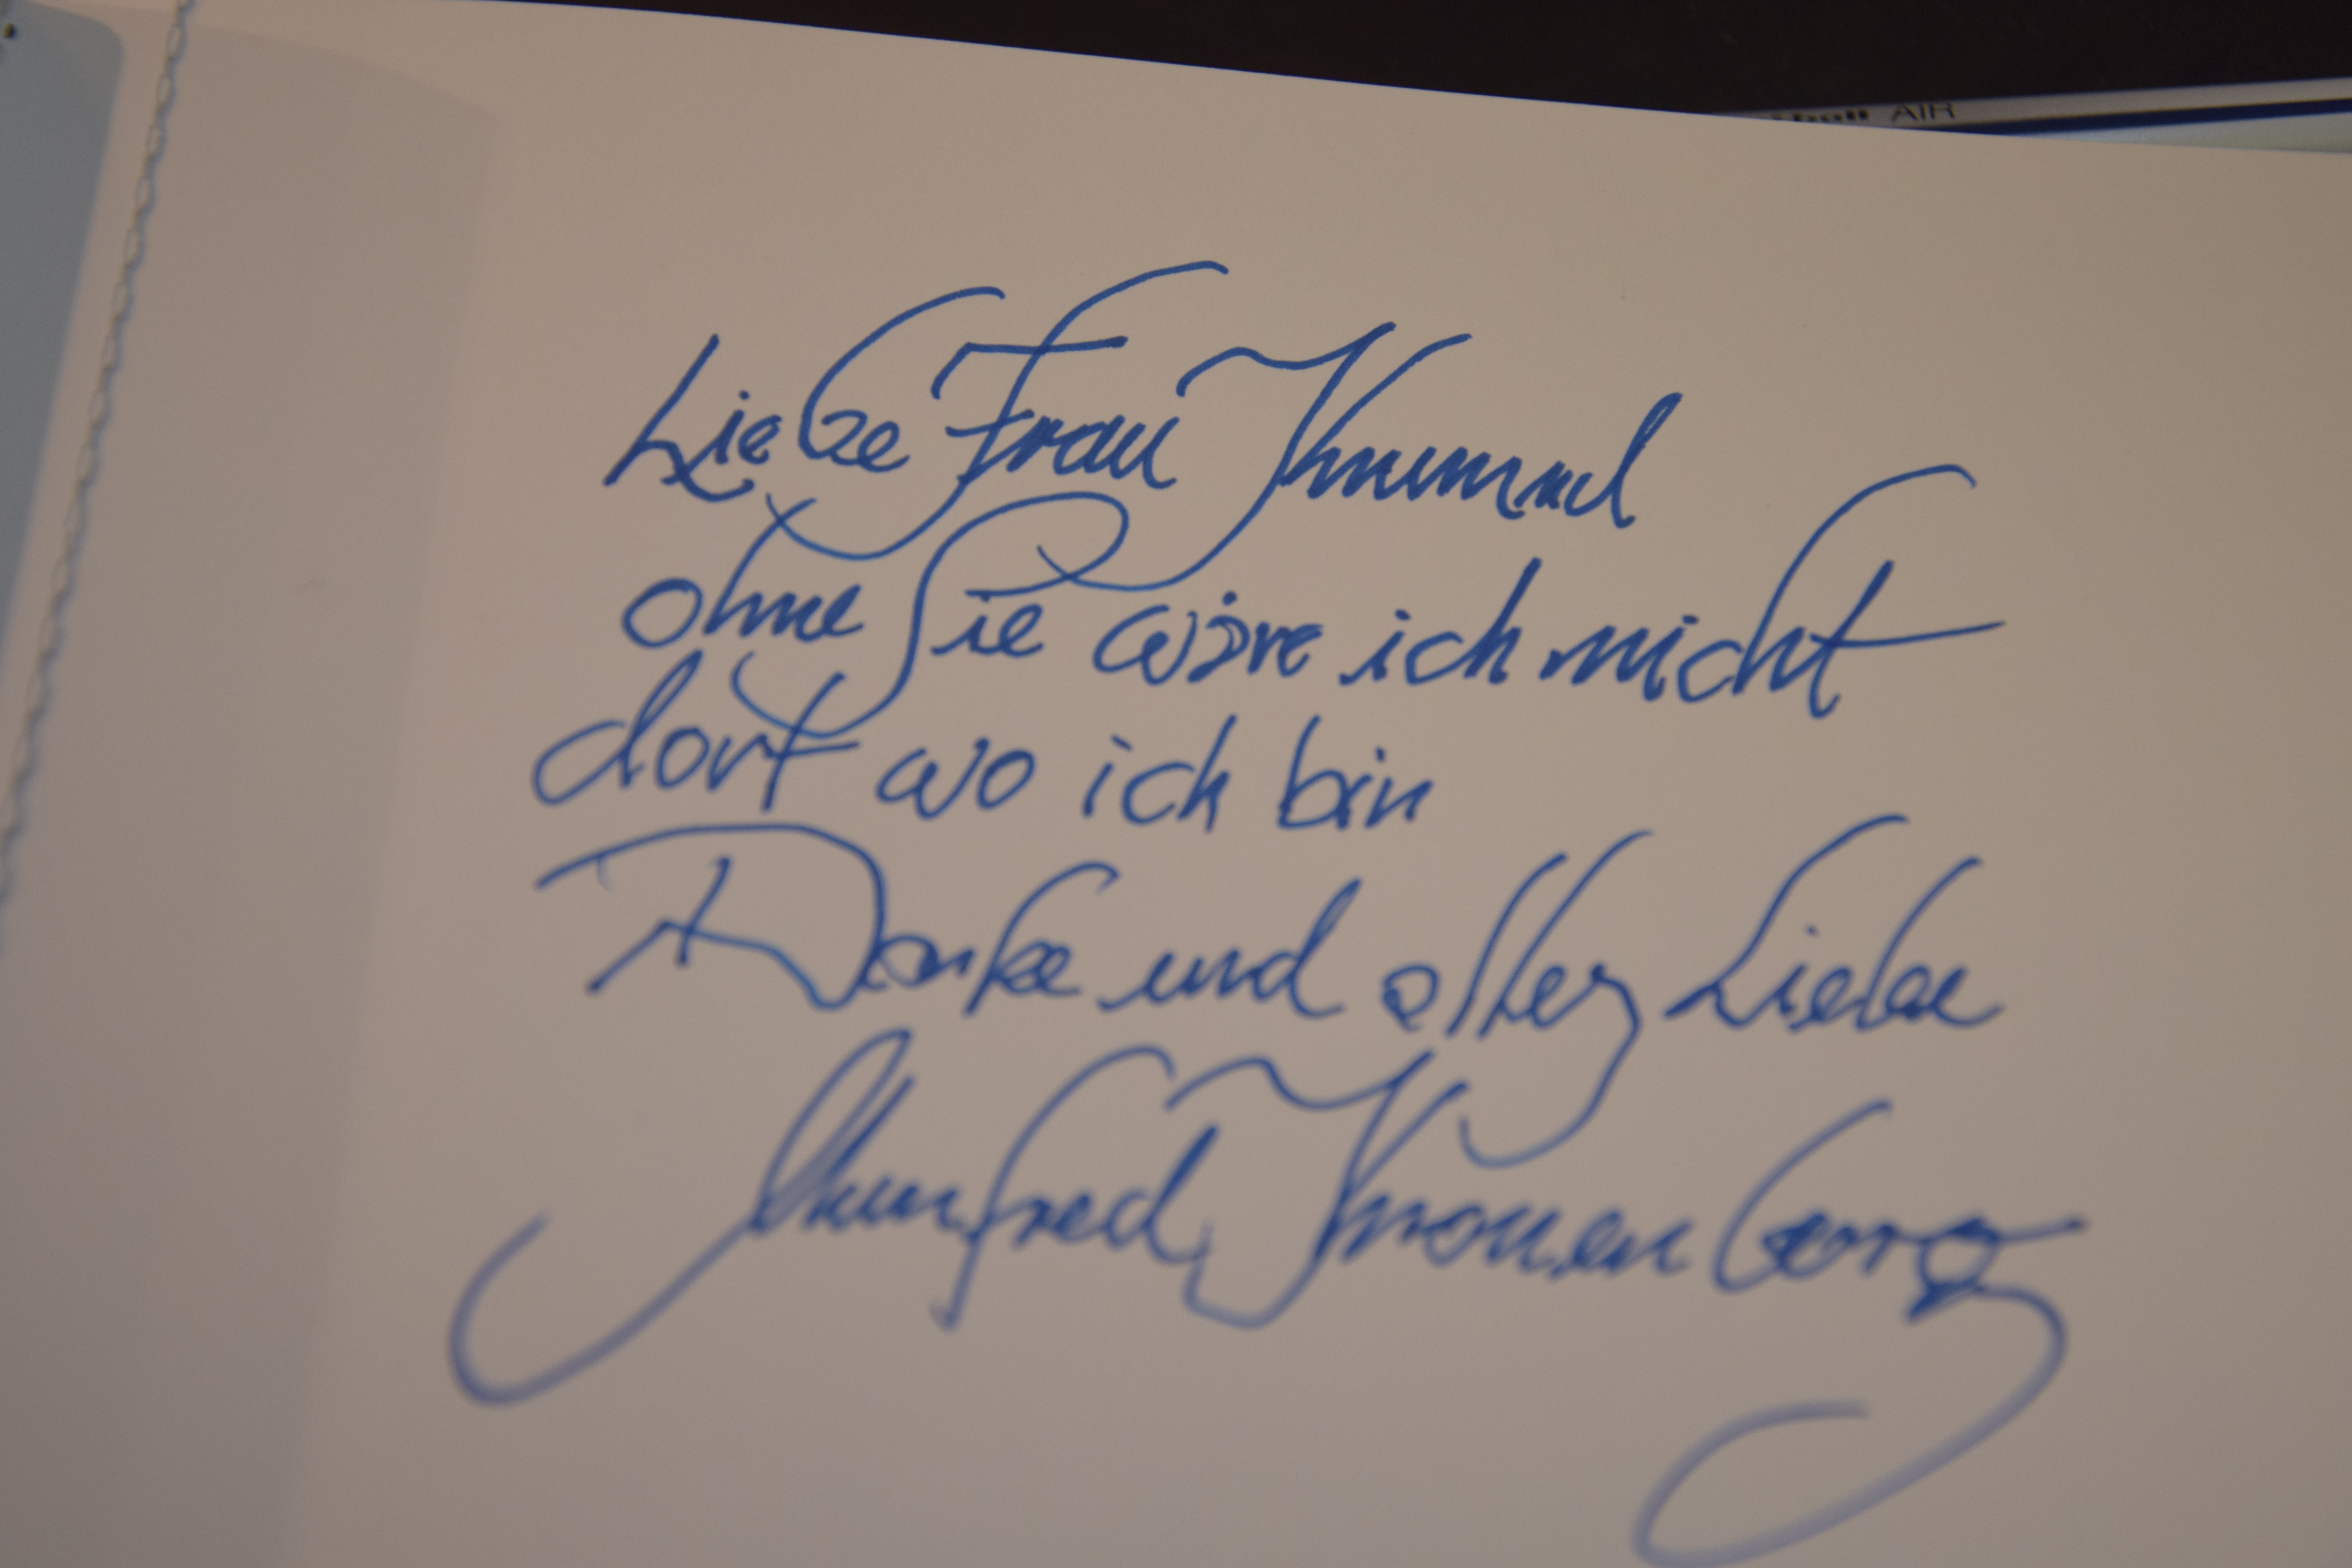 AIR
Liebe Frau
ohne Sie wäre ich nicht
dort wo ich bin
Danke und alles Liebe
Manfred Kronenberg